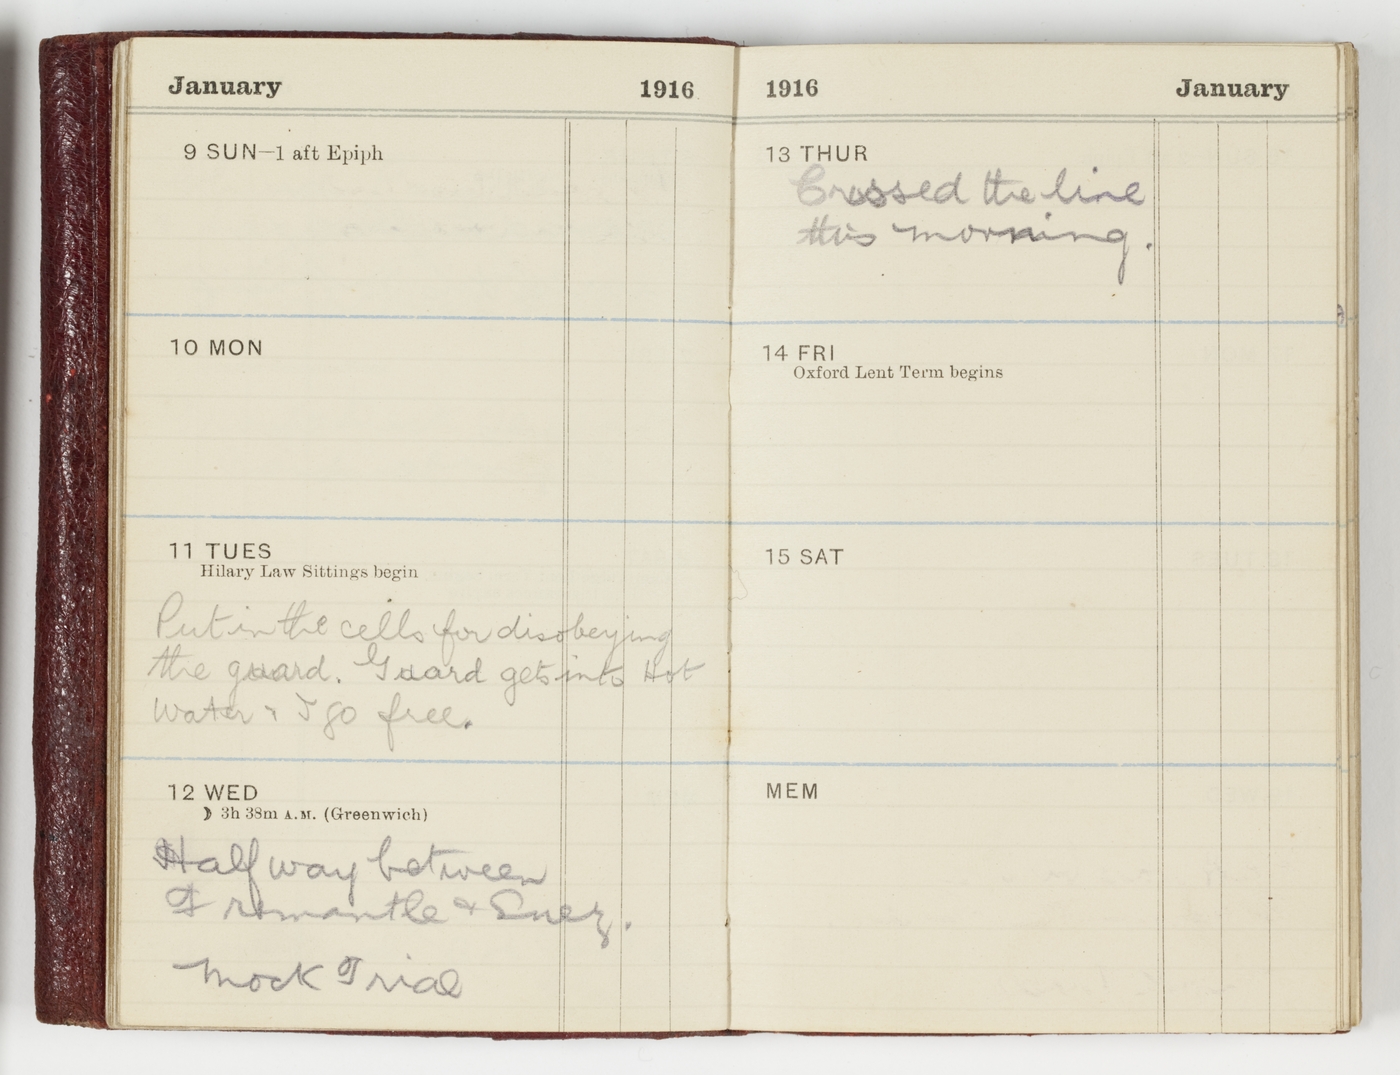 January 1916
9 SUN—1 aft Epiph
10 MON
11 TUES
Hilary Law Sittings begin
Put in the cells for disobeying
the guard. Guard gets into Hot
Water & I go free.
12 WED
☽ 3h 38m A.M. (Greenwich)
Half way between
Fromantle & Suez.
Mock Trial
1916 January
13 THUR
Crossed the line
this morning.
14 FRI
Oxford Lent Term begins
15 SAT
MEM